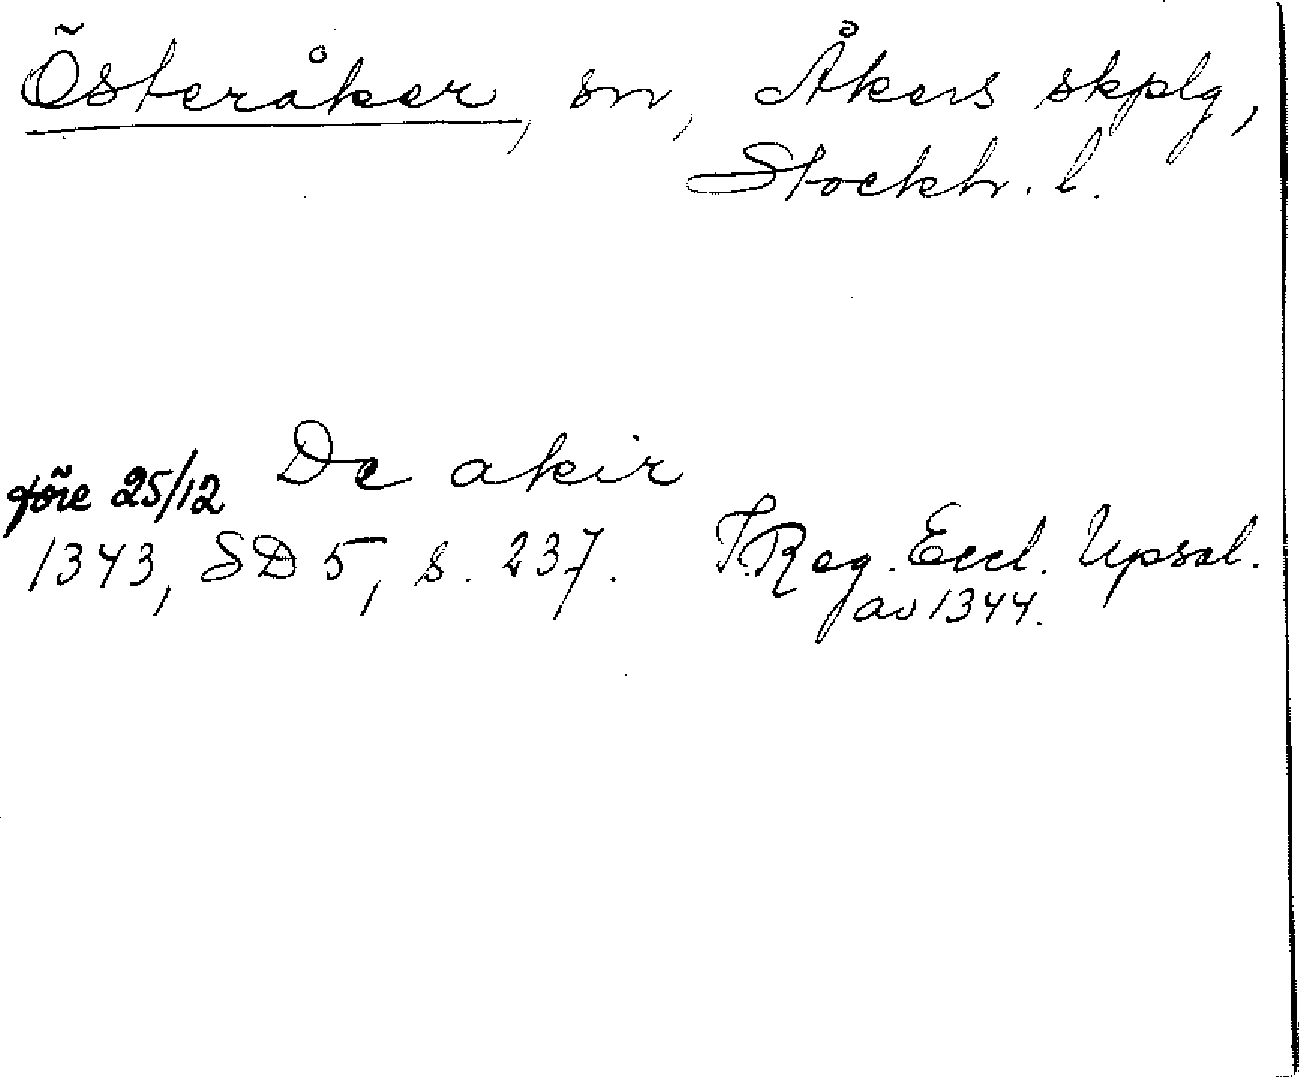 Österåker, sn, Åkers skplg,
Stockh. l.
De akir
före 25/12
1343, SD 5, s. 237. F. Reg. Eccl. Upsal.
av 1344.